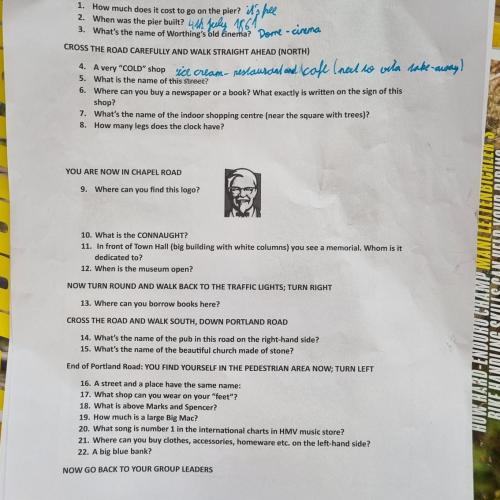 1. How much does it cost to go on the pier? it's free
2. When was the pier built? 4th july 1861
3. What's the name of Worthing's old cinema? Dome - cinema
CROSS THE ROAD CAREFULLY AND WALK STRAIGHT AHEAD (NORTH)
4. A very "COLD" shop ice cream - restaurant and café (next to vita take-away)
5. What is the name of this street?
6. Where can you buy a newspaper or a book? What exactly is written on the sign of this
shop?
7. What's the name of the indoor shopping centre (near the square with trees)?
8. How many legs does the clock have?
YOU ARE NOW IN CHAPEL ROAD
9. Where can you find this logo?
10. What is the CONNAUGHT?
11. In front of Town Hall (big building with white columns) you see a memorial. Whom is it
dedicated to?
12. When is the museum open?
NOW TURN ROUND AND WALK BACK TO THE TRAFFIC LIGHTS; TURN RIGHT
13. Where can you borrow books here?
CROSS THE ROAD AND WALK SOUTH, DOWN PORTLAND ROAD
14. What's the name of the pub in this road on the right-hand side?
15. What's the name of the beautiful church made of stone?
End of Portland Road: YOU FIND YOURSELF IN THE PEDESTRIAN AREA NOW; TURN LEFT
16. A street and a place have the same name:
17. What shop can you wear on your "feet"?
18. What is above Marks and Spencer?
19. How much is a large Big Mac?
20. What song is number 1 in the international charts in HMV music store?
21. Where can you buy clothes, accessories, homeware etc. on the left-hand side?
22. A big blue bank?
NOW GO BACK TO YOUR GROUP LEADERS